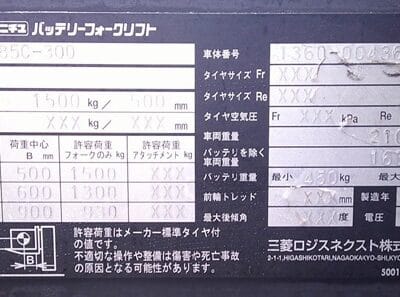 ニチユ バッテリーフォークリフト
85C-300
車体番号 1360-00436
タイヤサイズ Fr XXX
タイヤサイズ Re XXX
1500 kg / 500 mm
タイヤ空気圧 Fr XXX kPa Re
XXX kg / XXX mm
車両重量 210
荷重中心 B mm 許容荷重 フォークのみ kg 許容荷重 アタッチメント kg
バッテリを除く車両重量 16
500 1500 XXX
バッテリ重量 最小 450 kg 最大
600 1300 XXX
前輪トレッド XXX mm 製造年
900 930 XXX
最大後傾角 XXX 度 電圧
許容荷重はメーカー標準タイヤ付
の値です。
不適切な操作や整備は傷害や死亡事故
の原因となる可能性があります。
三菱ロジスネクスト株式
2-1-1,HIGASHIKOTARI,NAGAOKAKYO-SHI,KYO
5001